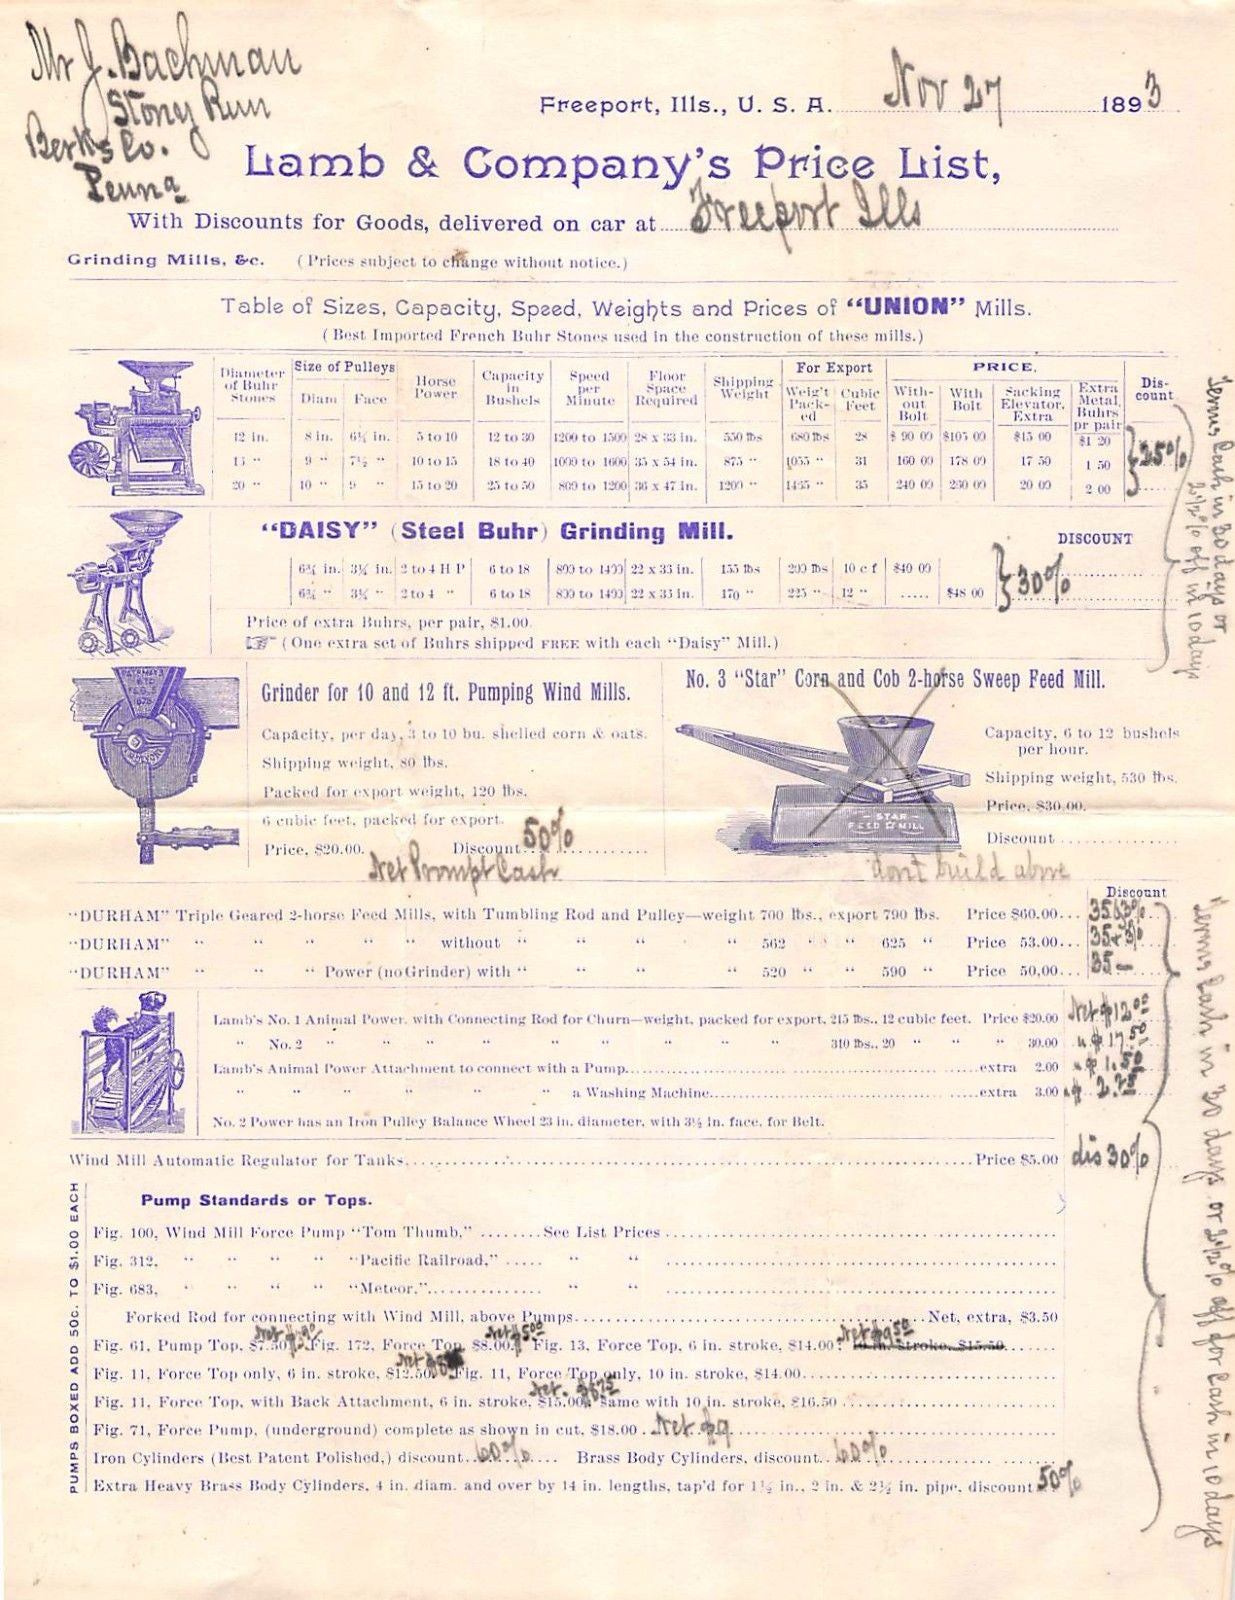 Mr J. Bachman
Stony Run
Berks Co.
Penna
Freeport, Ills., U. S. A. Nov 27 1893
Lamb & Company's Price List,
With Discounts for Goods, delivered on car at Freeport Ills
Grinding Mills, &c. (Prices subject to change without notice.)
Table of Sizes, Capacity, Speed, Weights and Prices of "UNION" Mills.
(Best Imported French Buhr Stones used in the construction of these mills.)
Diameter of Buhr Stones | Size of Pulleys Diam Face | Horse Power | Capacity in Bushels | Speed per Minute | Floor Space Required | Shipping Weight | For Export Weig't Pack-ed Cubic Feet | PRICE. With-out Bolt With Bolt Sacking Elevator, Extra Extra Metal Buhrs pr pair | Dis-count
12 in. 8 in. 6½ in. 5 to 10 12 to 30 1200 to 1500 28 x 33 in. 550 lbs 680 lbs 28 $ 90 00 $105 00 $15 00 $1 20
9 " 7½ " 10 to 15 18 to 40 1000 to 1600 35 x 54 in. 875 " 1055 " 31 160 00 178 00 17 50 1 50 25%
20 " 10 " 9 " 15 to 20 25 to 50 800 to 1200 36 x 47 in. 1200 " 35 240 00 20 00 2 00
"DAISY" (Steel Buhr) Grinding Mill. DISCOUNT
in. 3¾ in. 2 to 4 H P 6 to 18 800 to 1400 22 x 33 in. 155 lbs 200 lbs 10 c f $40 00
" 3¾ " 2 to 4 " 6 to 18 800 to 1400 22 x 33 in. 170 " 225 " 12 " ..... $48 00 30%
Price of extra Buhrs, per pair, $1.00.
(One extra set of Buhrs shipped FREE with each "Daisy" Mill.)
Terms Cash in 30 days or
2½% off in 10 days
Grinder for 10 and 12 ft. Pumping Wind Mills.
Capacity, per day, 3 to 10 bu. shelled corn & oats.
Shipping weight, 80 lbs.
Packed for export weight, 120 lbs.
6 cubic feet, packed for export.
Price, $20.00. Discount 50%
Net Prompt Cash
No. 3 "Star" Corn and Cob 2-horse Sweep Feed Mill.
Capacity, 6 to 12 bushels
per hour.
Shipping weight, 530 lbs.
Price, $30.00.
Discount
STAR
FEED MILL
dont build above
Discount
"DURHAM" Triple Geared 2-horse Feed Mills, with Tumbling Rod and Pulley—weight 700 lbs., export 790 lbs. Price $60.00... 35&3%
"DURHAM" " " " " without " " " " 562 " " 625 " Price 53.00... 35+3%
"DURHAM" " " " Power (no Grinder) with " " " " 520 " " 590 " Price 50.00... 35—
Lamb's No. 1 Animal Power, with Connecting Rod for Churn—weight, packed for export, 215 lbs., 12 cubic feet. Price $20.00 Net $12.00
" No. 2 " " " " " " " " 310 lbs., 20 " " " 30.00 " $17.50
Lamb's Animal Power Attachment to connect with a Pump....extra 2.00 " $1.50
" " " " " a Washing Machine....extra 3.00 " $2.25
No. 2 Power has an Iron Pulley Balance Wheel 23 in. diameter, with 3½ in. face, for Belt.
Wind Mill Automatic Regulator for Tanks....Price $5.00 dis 30%
Terms Cash in 30 days or 2½% off for Cash in 10 days
PUMPS BOXED ADD 50C. TO $1.00 EACH
Pump Standards or Tops.
Fig. 100, Wind Mill Force Pump "Tom Thumb," ........See List Prices
Fig. 312, " " " " "Pacific Railroad," ..... " "
Fig. 683, " " " " "Meteor,".... " "
Forked Rod for connecting with Wind Mill, above Pumps....Net, extra, $3.50
Fig. 61, Pump Top, $7.50 Fig. 172, Force Top, $8.00 Net $5.00 Fig. 13, Force Top, 6 in. stroke, $14.00 Net $9.50 10 in. stroke, $15.50
Fig. 11, Force Top only, 6 in. stroke, $12.50 Net Fig. 11, Force Top only, 10 in. stroke, $14.00
Fig. 11, Force Top, with Back Attachment, 6 in. stroke, $15.00 Net. same with 10 in. stroke, $16.50
Fig. 71, Force Pump, (underground) complete as shown in cut, $18.00 Net $9
Iron Cylinders (Best Patent Polished,) discount 60% Brass Body Cylinders, discount 60%
Extra Heavy Brass Body Cylinders, 4 in. diam. and over by 14 in. lengths, tap'd for 1½ in., 2 in. & 2½ in. pipe, discount 50%